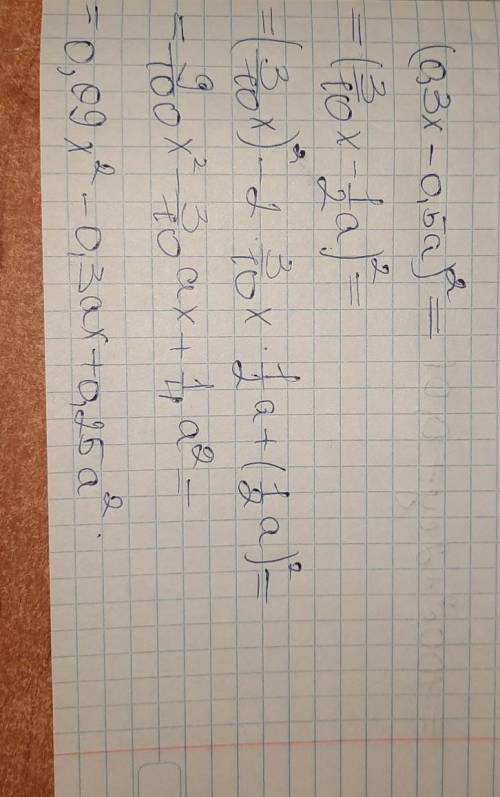 (0,3x - 0,5a)² =
= (3/10 x - 1/2 a)² =
= (3/10 x)² - 2 · 3/10 x · 1/2 a + (1/2 a)² =
= 9/100 x² - 3/10 ax + 1/4 a² =
= 0,09x² - 0,3ax + 0,25a².